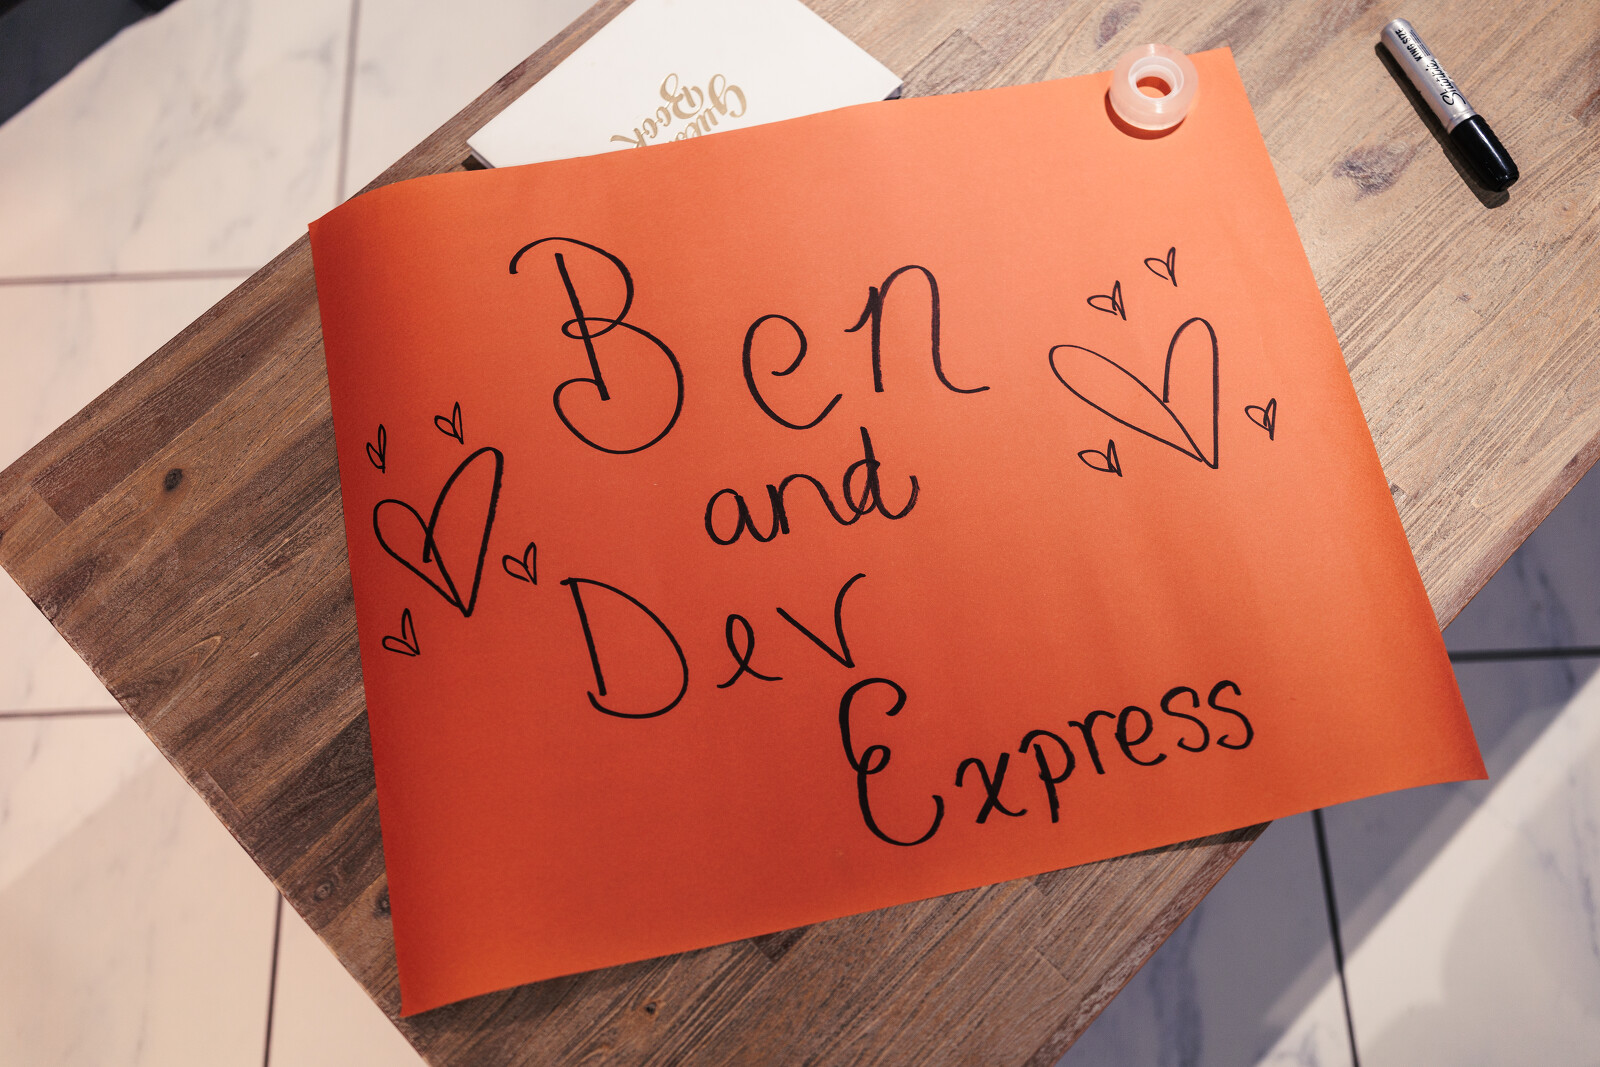 Guest
Book
Sharpie KING SIZE
Ben
and
Dev
Express